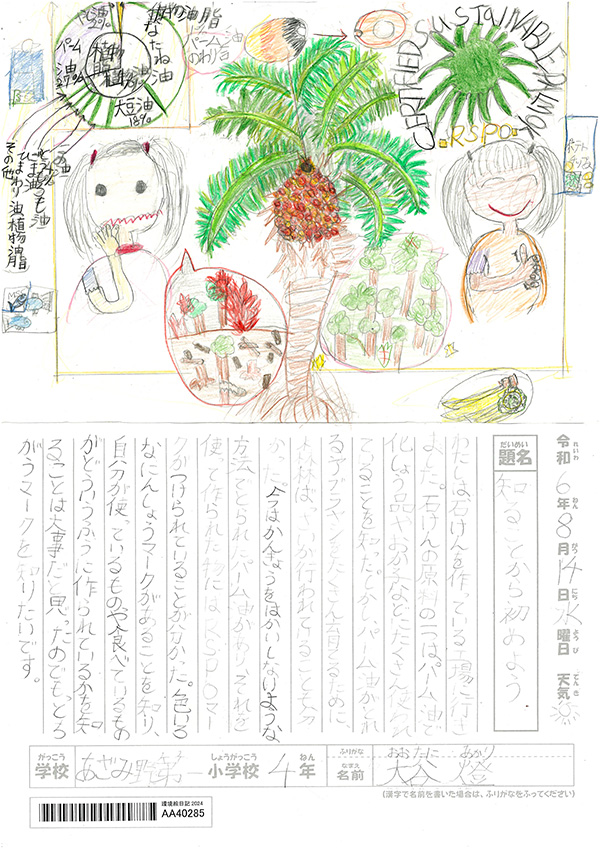 植物油脂
パーム油
なたね油
大豆油
18%
ごま油
ひまわり油
その他
植物油脂
CERTIFIED SUSTAINABLE PALM OIL
RSPO
令和6年8月14日水曜日 天気
れいわ ねん がつ にち ようび てんき
だいめい
題名
知ることから初めよう。
わたしは石けんを作っている工場に行き
ました。石けんの原料の一つは、パーム油で
化しょう品やおかしなどにたくさん使われ
ていることを知った。でも、パーム油がとれ
るアブラヤシをたくさん育てるために、
行われていること
かった。今はかんきょうをはかいしないような
方法でとられたパーム油があり、それを
使って作られた物にはRSPOマー
クがつけられていることが分かった。色いろ
なにんしょうマークがあることを知り、
自分が使っているものや食べているもの
がどういうふうに作られているかを知
ることは大事だと思ったので、もっとち
がうマークを知りたいです。
がっこう
学校
あざみ野第一
しょうがっこう
小学校
4
ねん
年
ふりがな
おおたに あかり
なまえ
名前
大谷 燈
(漢字で名前を書いた場合は、ふりがなをふってください)
環境絵日記2024
AA40285